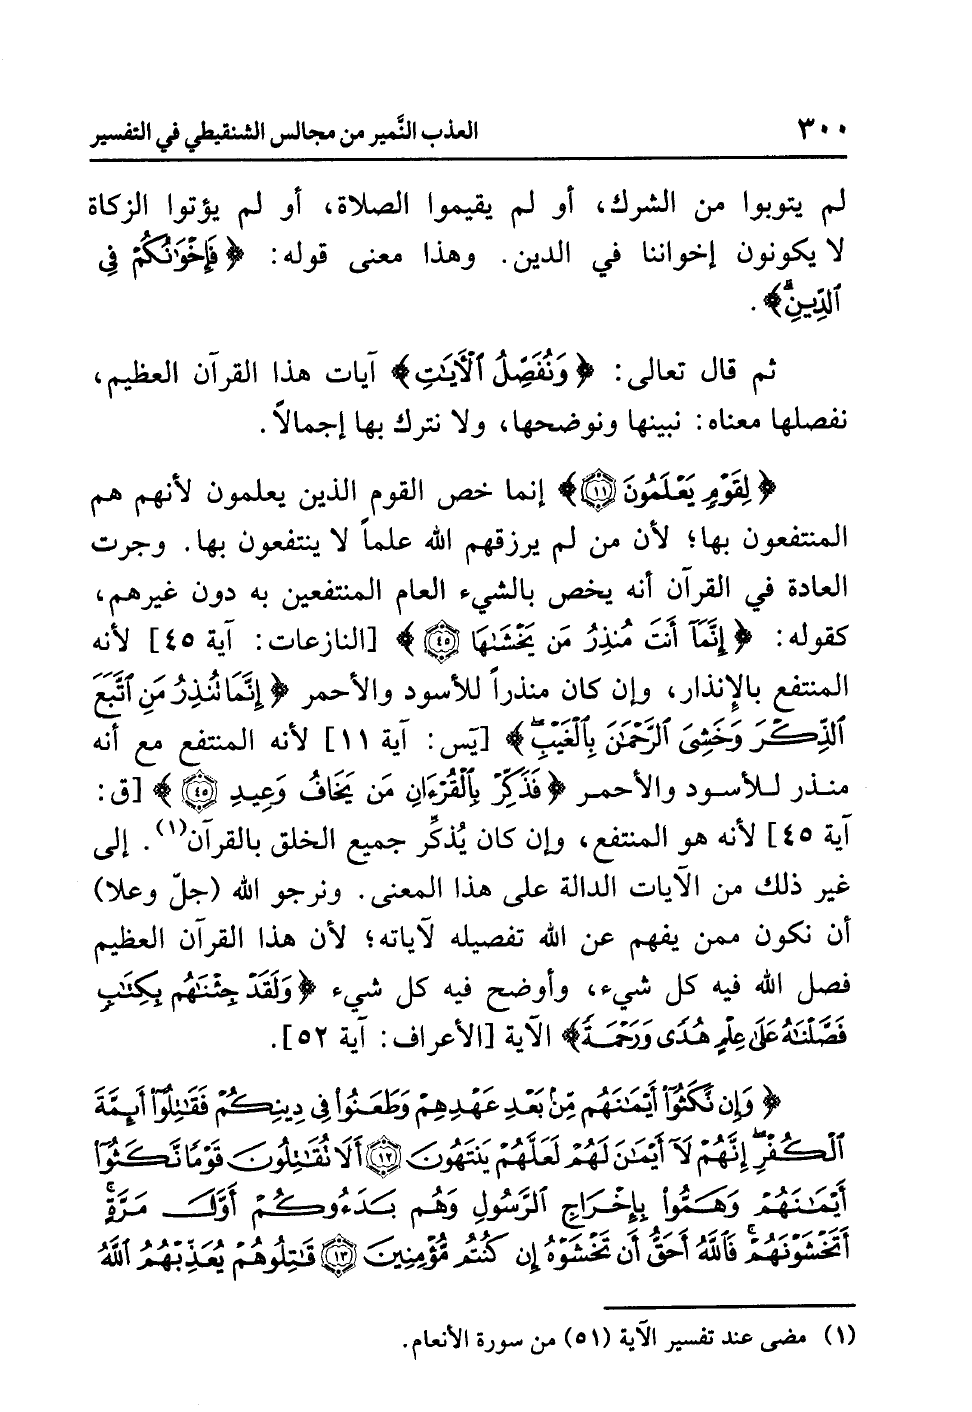 ٣٠٠ العذب النَّمير من مجالس الشنقيطي في التفسير
لم يتوبوا من الشرك، أو لم يقيموا الصلاة، أو لم يؤتوا الزكاة
لا يكونون إخواننا في الدين. وهذا معنى قوله: ﴿ فَإِخْوَٰنُكُمْ فِى
ٱلدِّينِۗ ﴾.
ثم قال تعالى: ﴿ وَنُفَصِّلُ ٱلْأَيَٰتِ ﴾ آيات هذا القرآن العظيم،
نفصلها معناه: نبينها ونوضحها، ولا نترك بها إجمالاً.
﴿ لِقَوْمٍ يَعْلَمُونَ ۝١١ ﴾ إنما خص القوم الذين يعلمون لأنهم هم
المنتفعون بها؛ لأن من لم يرزقهم الله علماً لا ينتفعون بها. وجرت
العادة في القرآن أنه يخص بالشيء العام المنتفعين به دون غيرهم،
كقوله: ﴿ إِنَّمَآ أَنتَ مُنذِرُ مَن يَخْشَىٰهَا ۝٤٥ ﴾ [النازعات: آية ٤٥] لأنه
المنتفع بالإِنذار، وإن كان منذراً للأسود والأحمر ﴿ إِنَّمَا تُنذِرُ مَنِ ٱتَّبَعَ
ٱلذِّكْرَ وَخَشِىَ ٱلرَّحْمَٰنَ بِٱلْغَيْبِۖ ﴾ [يَس: آية ١١] لأنه المنتفع مع أنه
منذر للأسود والأحمر ﴿ فَذَكِّرْ بِٱلْقُرْءَانِ مَن يَخَافُ وَعِيدِ ۝٤٥ ﴾ [ق:
آية ٤٥] لأنه هو المنتفع، وإن كان يُذكِّر جميع الخلق بالقرآن(١). إلى
غير ذلك من الآيات الدالة على هذا المعنى. ونرجو الله (جلّ وعلا)
أن نكون ممن يفهم عن الله تفصيله لآياته؛ لأن هذا القرآن العظيم
فصل الله فيه كل شيء، وأوضح فيه كل شيء ﴿ وَلَقَدْ جِئْنَٰهُم بِكِتَٰبٍ
فَصَّلْنَٰهُ عَلَىٰ عِلْمٍ هُدًى وَرَحْمَةً ﴾ الآية [الأعراف: آية ٥٢].
﴿ وَإِن نَّكَثُوٓا۟ أَيْمَٰنَهُم مِّنۢ بَعْدِ عَهْدِهِمْ وَطَعَنُوا۟ فِى دِينِكُمْ فَقَٰتِلُوٓا۟ أَئِمَّةَ
ٱلْكُفْرِۙ إِنَّهُمْ لَآ أَيْمَٰنَ لَهُمْ لَعَلَّهُمْ يَنتَهُونَ ۝١٢ أَلَا تُقَٰتِلُونَ قَوْمًا نَّكَثُوٓا۟
أَيْمَٰنَهُمْ وَهَمُّوا۟ بِإِخْرَاجِ ٱلرَّسُولِ وَهُم بَدَءُوكُمْ أَوَّلَ مَرَّةٍۚ
أَتَخْشَوْنَهُمْۚ فَٱللَّهُ أَحَقُّ أَن تَخْشَوْهُ إِن كُنتُم مُّؤْمِنِينَ ۝١٣ قَٰتِلُوهُمْ يُعَذِّبْهُمُ ٱللَّهُ
(١) مضى عند تفسير الآية (٥١) من سورة الأنعام.